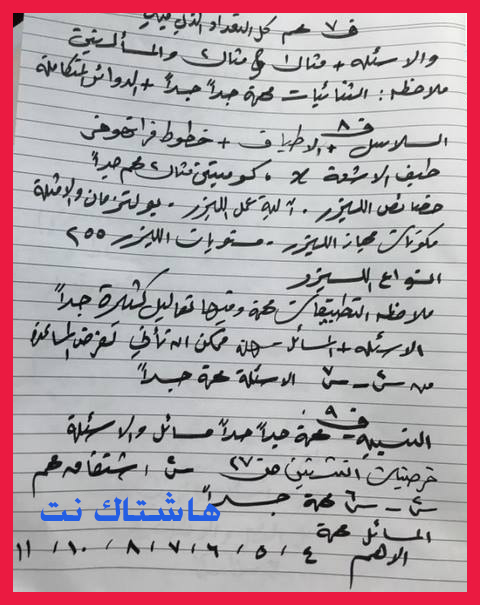 ف٧ مهم كل التعداد الذي فيه
والاسئله + مثال١ و مثال٢ والمسألتين
ملاحظه: الثنائيات مهمة جداً جداً + الدوائر المتكاملة
ف٨
السلاسل + الاطياف + خطوط فراونهوفر
طيف الاشعة x ، كومبتن مثال٢ مهم جداً
خصائص الليزر . آلية عمل الليزر . بولتزمان والامثلة
مكونات جهاز الليزر - مستويات الليزر ٢٥٥
انواع الليزر
ملاحظه التطبيقات مهمة وفيها تعاليل كثيرة جداً
الاسئله + المسائل ممكن ان تأتي
من س - س٧ الاسئلة مهمة جداً
ف٩
النسبية - مهمة جداً جداً مسائل والاسئلة
فرضيات انشتاين ص٢٧ س اشتقاقه مهم
س - س٦ مهمة جداً
هاشتاك نت
المسائل مهمة
الاهم ٤ / ٥ / ٦ / ٧ / ٨ / ١٠ / ١١